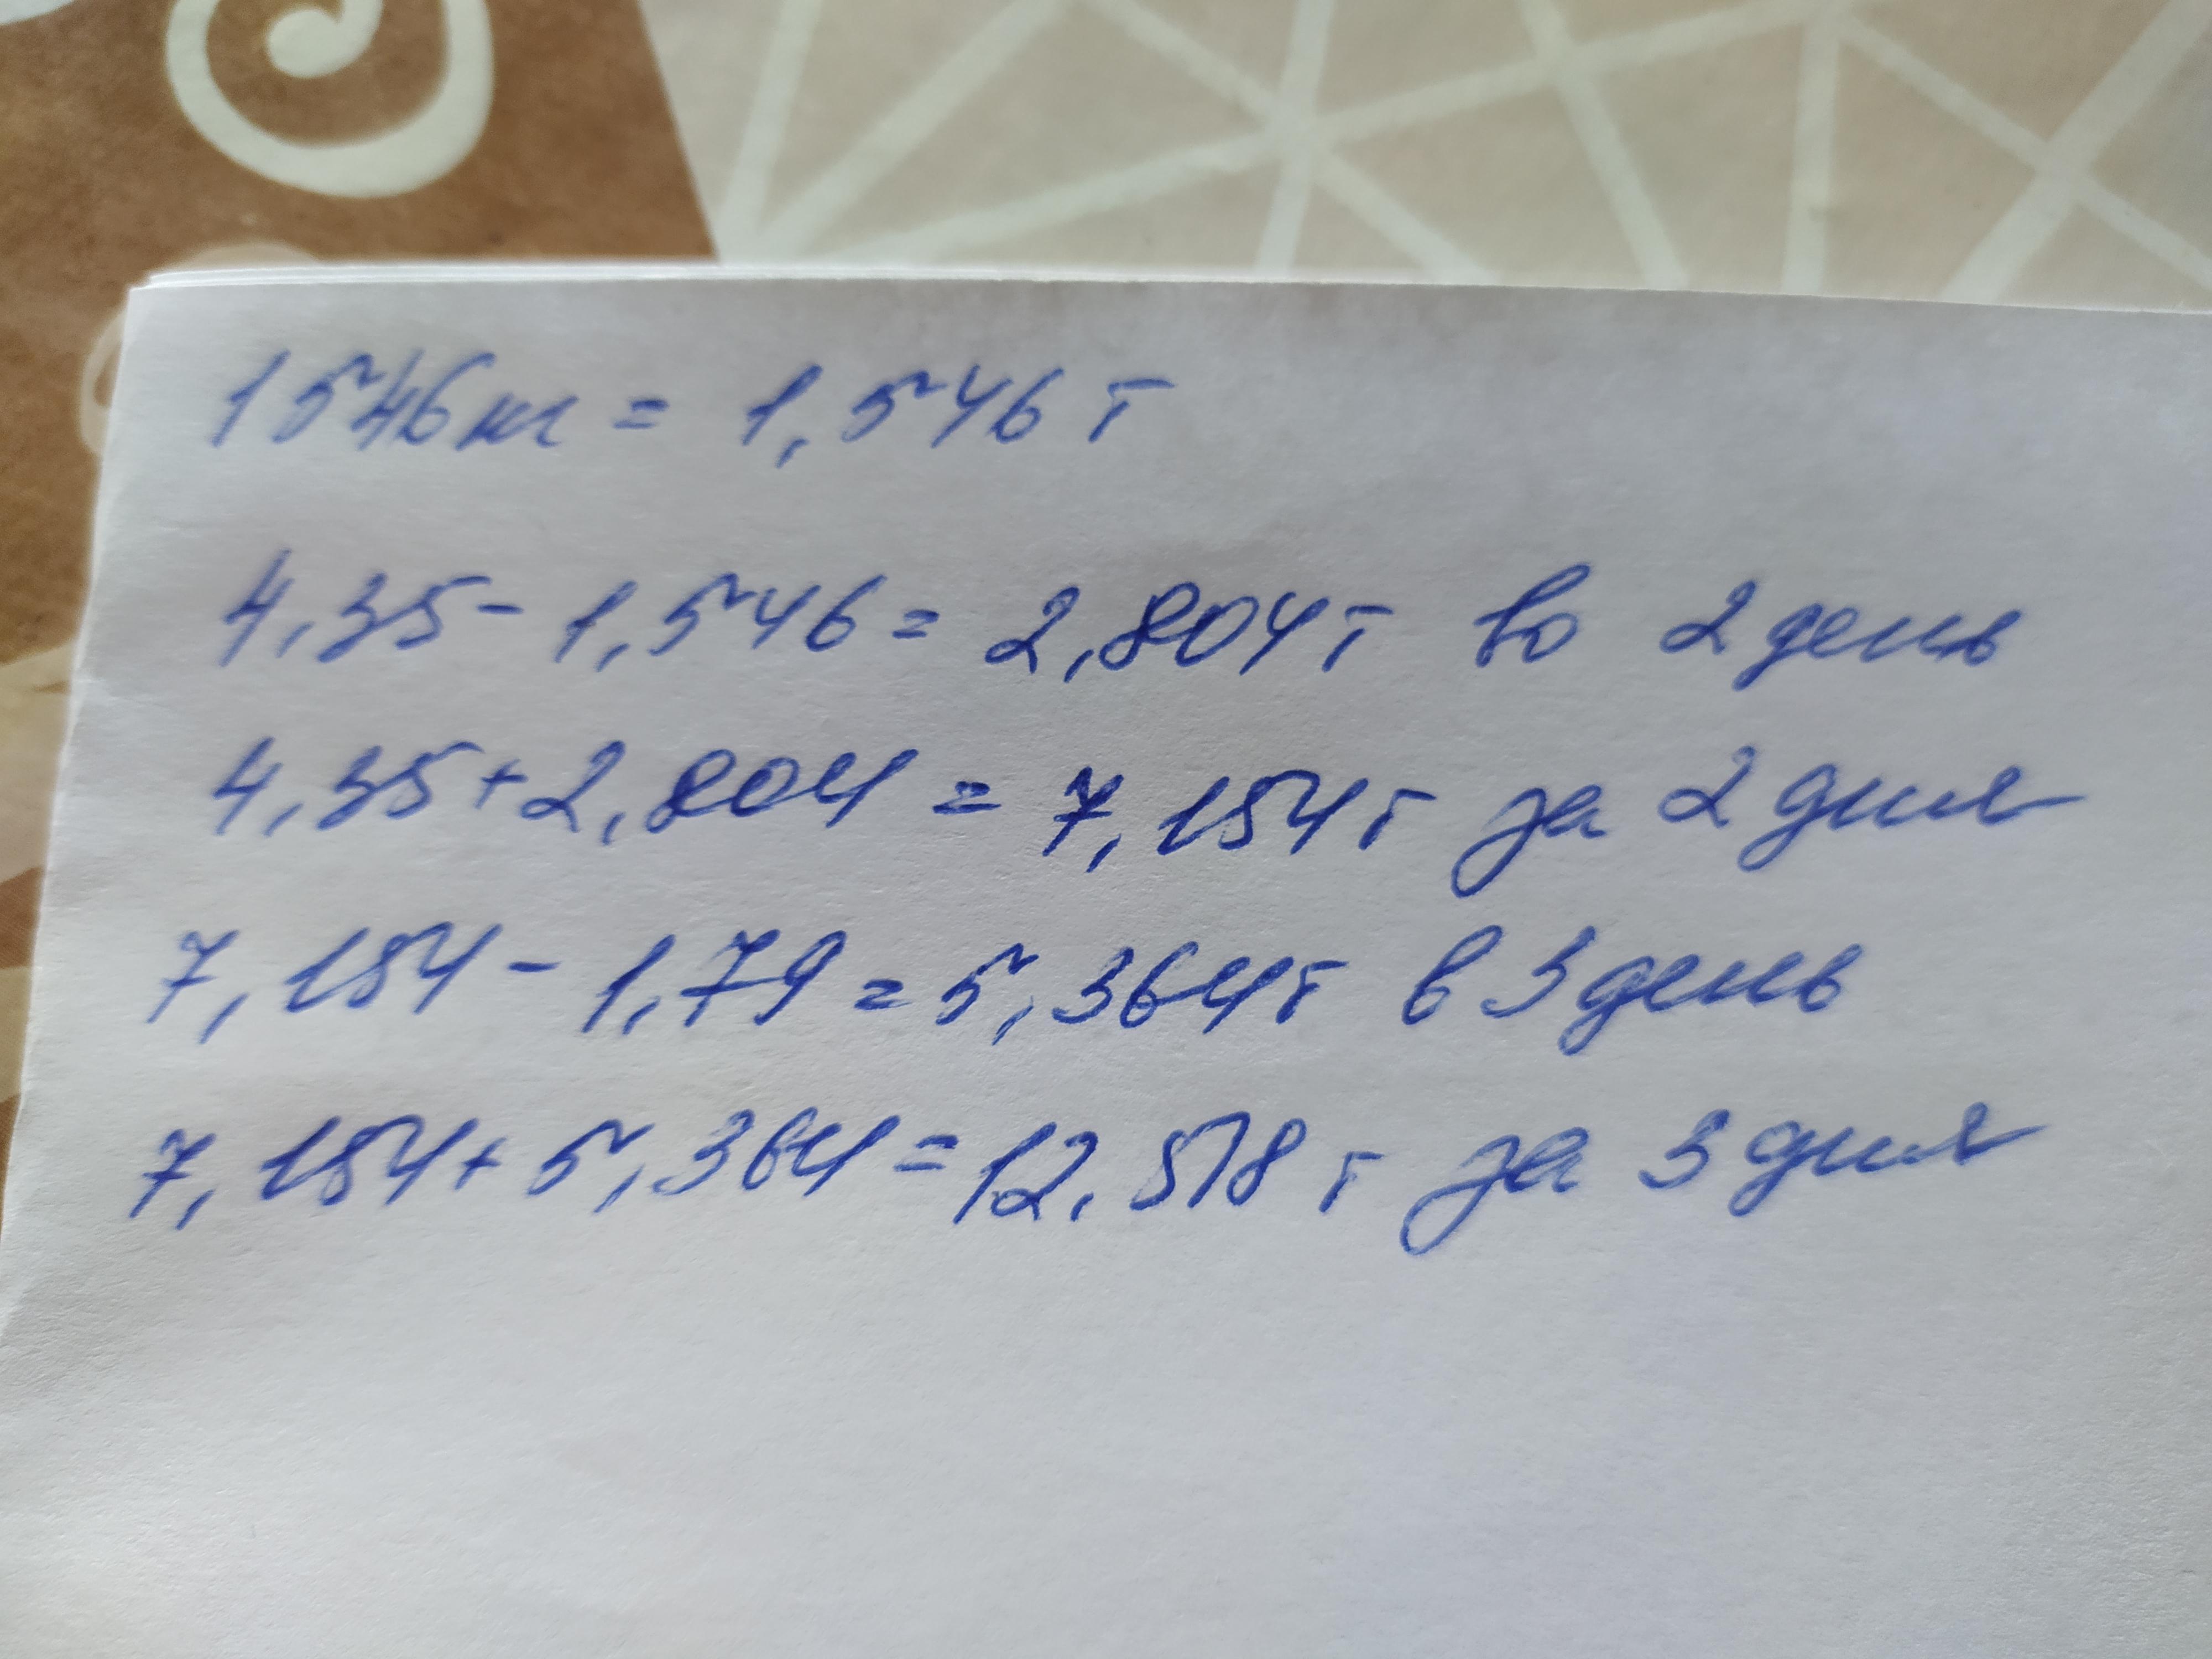 1546кг = 1,546 т
4,35 - 1,546 = 2,804 т во 2 день
4,35 + 2,804 = 7,154 т за 2 дня
7,154 - 1,79 = 5,364 т в 3 день
7,154 + 5,364 = 12,518 т за 3 дня